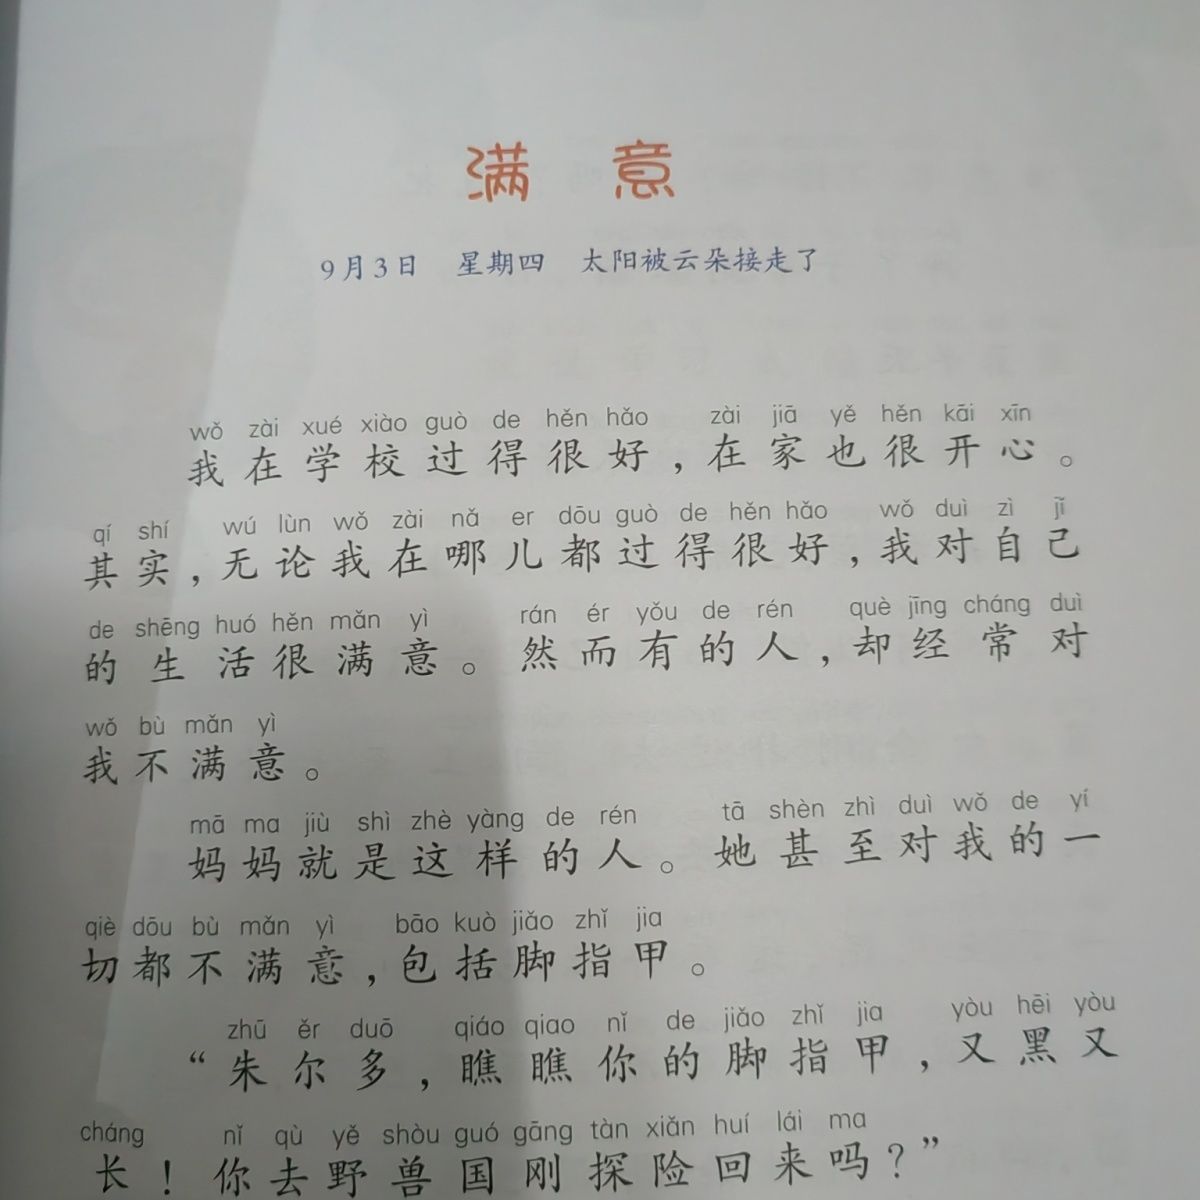 满 意
9月3日 星期四 太阳被云朵接走了
wǒ zài xué xiào guò de hěn hǎo zài jiā yě hěn kāi xīn
我在学校过得很好，在家也很开心。
qí shí wú lùn wǒ zài nǎ er dōu guò de hěn hǎo wǒ duì zì jǐ
其实，无论我在哪儿都过得很好，我对自己
de shēng huó hěn mǎn yì rán ér yǒu de rén què jīng cháng duì
的生活很满意。然而有的人，却经常对
wǒ bù mǎn yì
我不满意。
mā ma jiù shì zhè yàng de rén tā shèn zhì duì wǒ de yí
妈妈就是这样的人。她甚至对我的一
qiè dōu bù mǎn yì bāo kuò jiǎo zhǐ jia
切都不满意，包括脚指甲。
zhū ěr duō qiáo qiao nǐ de jiǎo zhǐ jia yòu hēi yòu
“朱尔多，瞧瞧你的脚指甲，又黑又
cháng nǐ qù yě shòu guó gāng tàn xiǎn huí lái ma
长！你去野兽国刚探险回来吗？”